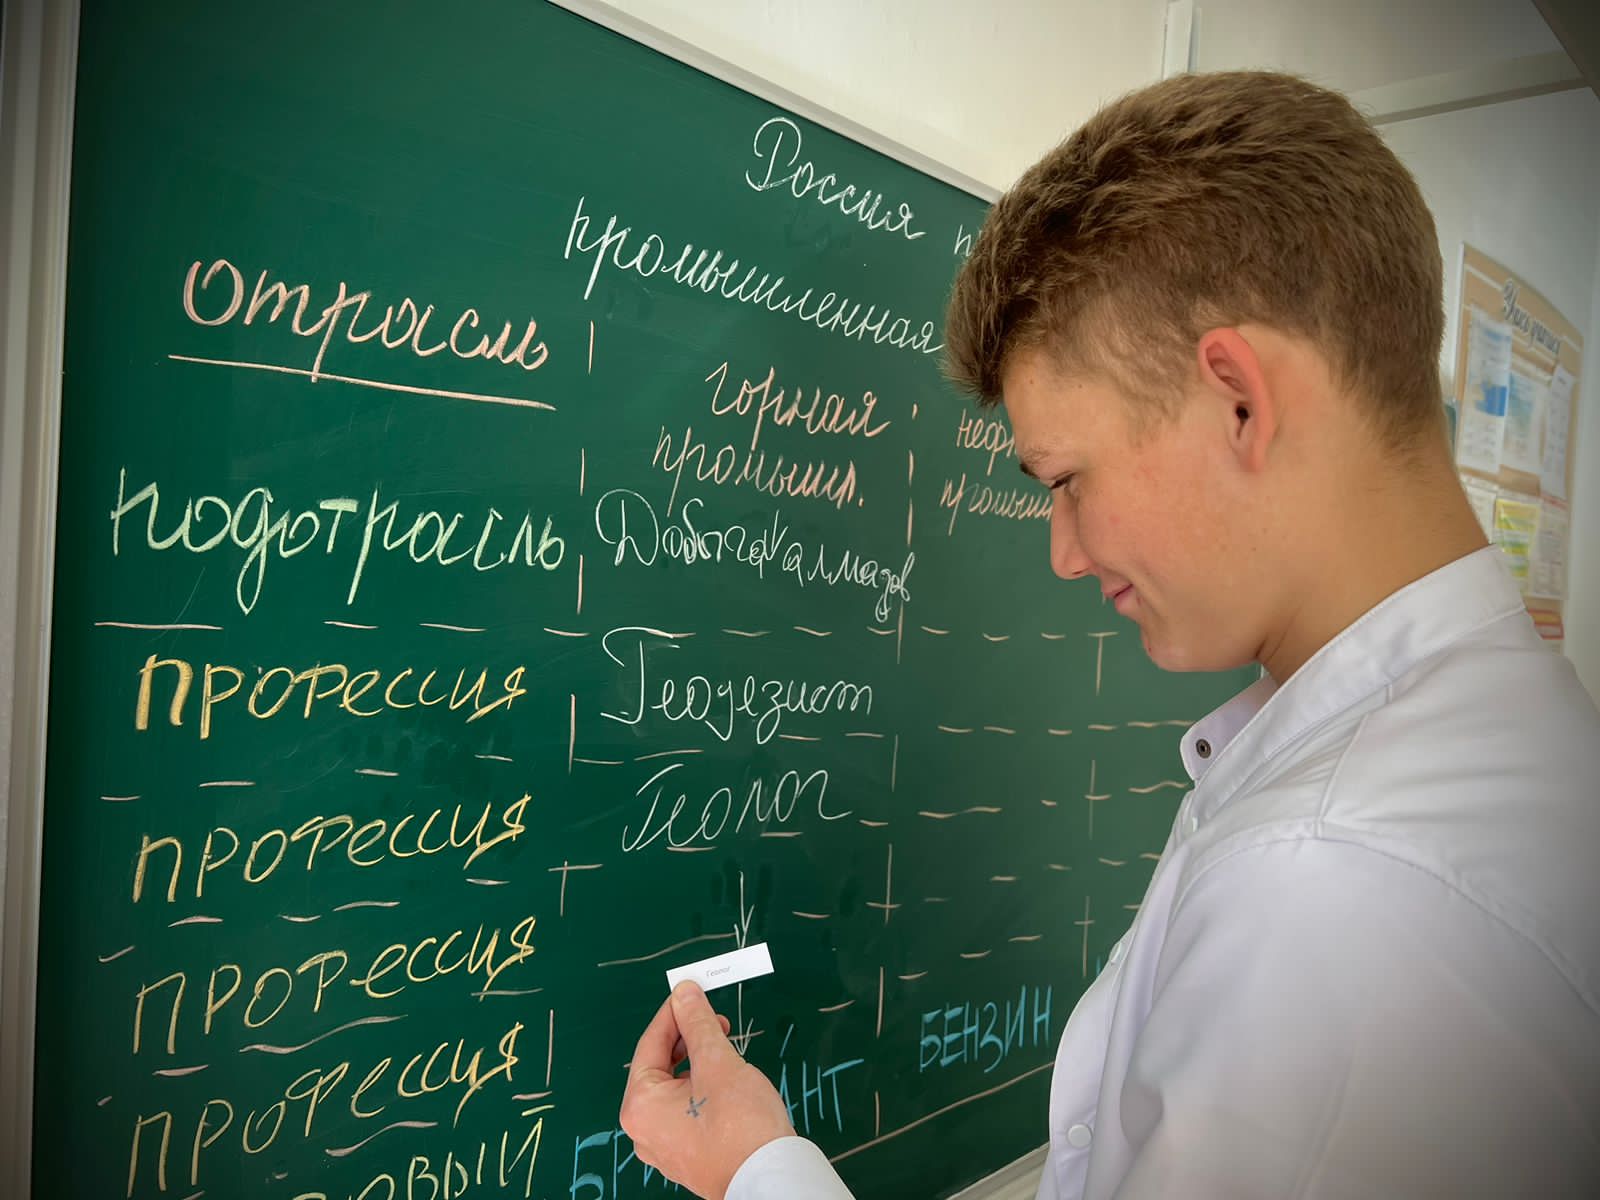 Россия
промышленная
Отрасль
горная
промышл.
подотрасль
Добыча алмазов
профессия
Геодезист
профессия
Геолог
профессия
Геолог
профессия
БЕНЗИН